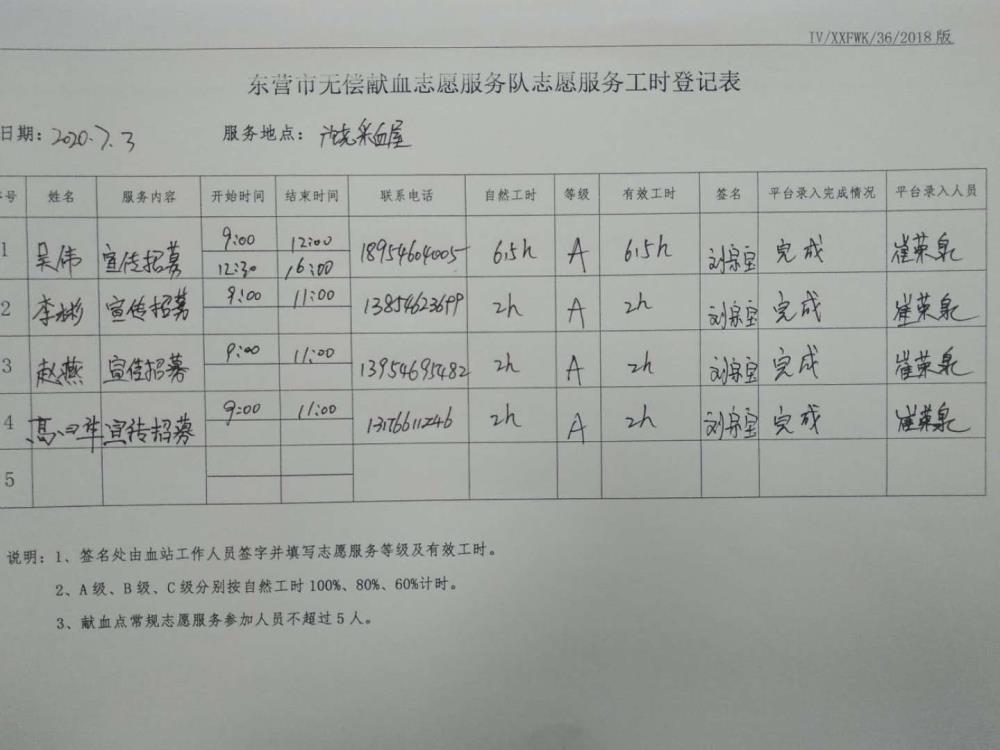 IV/XXFWK/36/2018版
东营市无偿献血志愿服务队志愿服务工时登记表
日期：2020.7.3 服务地点：采血屋
序号 姓名 服务内容 开始时间 结束时间 联系电话 自然工时 等级 有效工时 签名 平台录入完成情况 平台录入人员
1 吴伟 宣传招募 9:00 12:00 18954604005 6.5h A 6.5h 刘宗宝 完成 崔荣泉
12:30 16:00
2 李彬 宣传招募 9:00 11:00 13854623699 2h A 2h 刘宗宝 完成 崔荣泉
3 赵燕 宣传招募 9:00 11:00 13954695482 2h A 2h 刘宗宝 完成 崔荣泉
4 宣传招募 9:00 11:00 13176611246 2h A 2h 刘宗宝 完成 崔荣泉
5
说明：1、签名处由血站工作人员签字并填写志愿服务等级及有效工时。
2、A级、B级、C级分别按自然工时100%、80%、60%计时。
3、献血点常规志愿服务参加人员不超过5人。